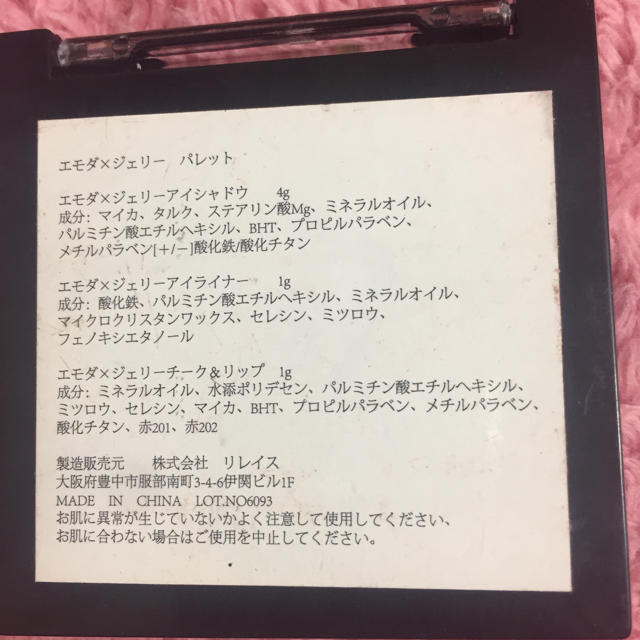 エモダ×ジェリー　パレット
エモダ×ジェリーアイシャドウ　　4g
成分: マイカ、タルク、ステアリン酸Mg、ミネラルオイル、
パルミチン酸エチルヘキシル、BHT、プロピルパラベン、
メチルパラベン[+/−]酸化鉄/酸化チタン
エモダ×ジェリーアイライナー　　1g
成分: 酸化鉄、パルミチン酸エチルヘキシル、ミネラルオイル、
マイクロクリスタンワックス、セレシン、ミツロウ、
フェノキシエタノール
エモダ×ジェリーチーク&リップ　1g
成分: ミネラルオイル、水添ポリデセン、パルミチン酸エチルヘキシル、
ミツロウ、セレシン、マイカ、BHT、プロピルパラベン、メチルパラベン、
酸化チタン、赤201、赤202
製造販売元　　株式会社　リレイス
大阪府豊中市服部南町3-4-6伊関ビル1F
MADE IN CHINA LOT.NO6093
お肌に異常が生じていないかよく注意して使用してください、
お肌に合わない場合はご使用を中止してください。